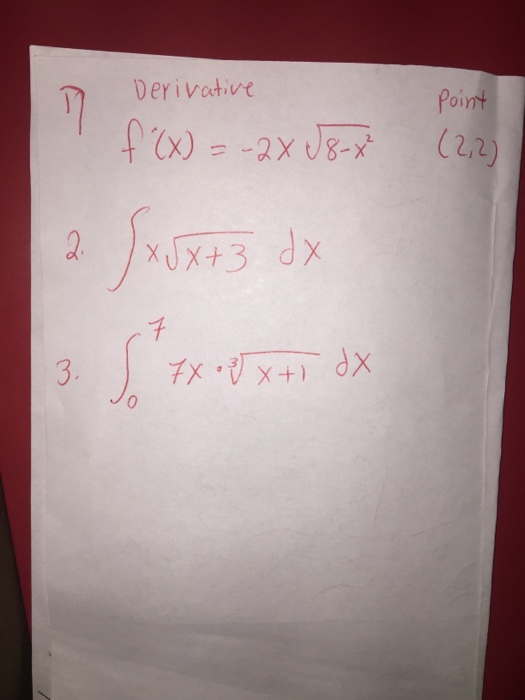 1) Derivative Point
f'(x) = -2x √8-x² (2,2)
2. ∫x√x+3 dx
3. ∫₀⁷ 7x · ³√x+1 dx